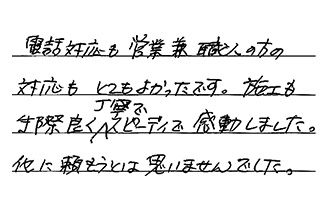 電話対応も営業兼職人の方の
対応もとてもよかったです。施工も
手際良く丁寧でスピーディで感動しました。
他に頼もうとは思いませんでした。